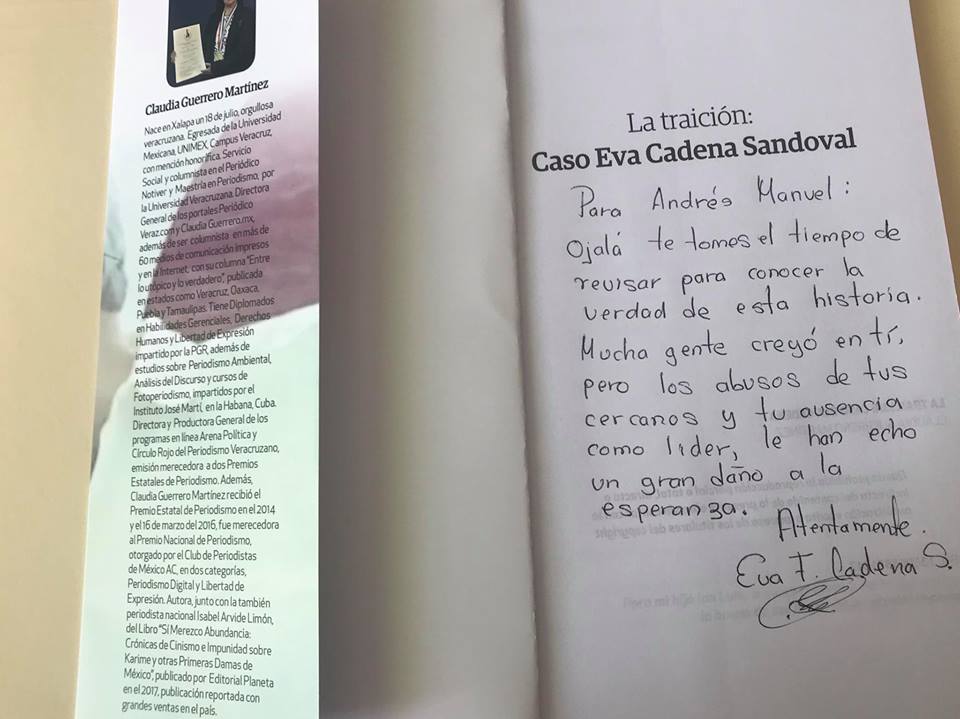 Claudia Guerrero Martínez
Nace en Xalapa un 18 de julio, orgullosa
veracruzana. Egresada de la Universidad
Mexicana, UNIMEX, Campus Veracruz,
con mención honorífica. Servicio
Social y columnista en el Periódico
Notiver y Maestría en Periodismo, por
la Universidad Veracruzana. Directora
General de los portales Periódico
Veraz.com y Claudia Guerrero.mx,
además de ser columnista en más de
60 medios de comunicación impresos
y en la Internet, con su columna "Entre
lo utópico y lo verdadero", publicada
en estados como Veracruz, Oaxaca,
Puebla y Tamaulipas. Tiene Diplomados
en Habilidades Gerenciales, Derechos
Humanos y Libertad de Expresión
impartido por la PGR, además de
estudios sobre Periodismo Ambiental,
Análisis del Discurso y cursos de
Fotoperiodismo, impartidos por el
Instituto José Martí, en la Habana, Cuba.
Directora y Productora General de los
programas en línea Arena Política y
Círculo Rojo del Periodismo Veracruzano,
emisión merecedora a dos Premios
Estatales de Periodismo. Además,
Claudia Guerrero Martínez recibió el
Premio Estatal de Periodismo en el 2014
y el 16 de marzo del 2016, fue merecedora
al Premio Nacional de Periodismo,
otorgado por el Club de Periodistas
de México AC, en dos categorías,
Periodismo Digital y Libertad de
Expresión. Autora, junto con la también
periodista nacional Isabel Arvide Limón,
del Libro "Sí Merezco Abundancia:
Crónicas de Cinismo e Impunidad sobre
Karime y otras Primeras Damas de
México", publicado por Editorial Planeta
en el 2017, publicación reportada con
grandes ventas en el país.
La traición:
Caso Eva Cadena Sandoval
Para Andrés Manuel:
Ojalá te tomes el tiempo de
revisar para conocer la
verdad de esta historia.
Mucha gente creyó en tí,
pero los abusos de tus
cercanos y tu ausencia
como líder, le han echo
un gran daño a la
esperanza.
Atentamente.
Eva F. Cadena S.